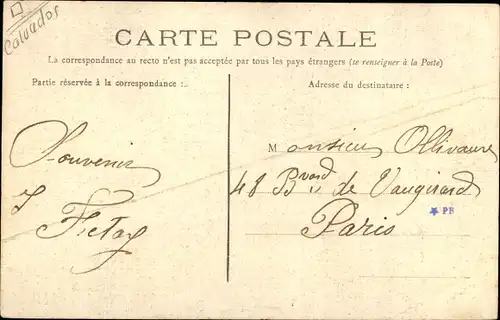 Calvados
CARTE POSTALE
La correspondance au recto n'est pas acceptée par tous les pays étrangers (se renseigner à la Poste)
Partie réservée à la correspondance :
Adresse du destinataire :
Souvenir
Monsieur Ollivaux
48 Bvard de Vaugirard
Paris
PB